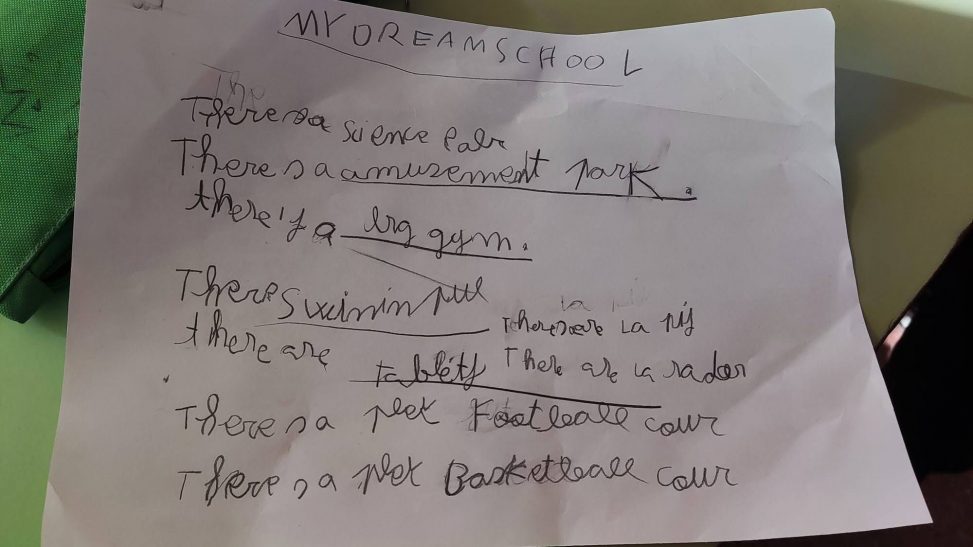 MY DREAM SCHOOL
The
There sa science Palr
There s a amusement park.
there's a big gym.
There Swinin pull
there are tablets
There are la
There are la radar
There s a Football cour
There s a Basketball cour